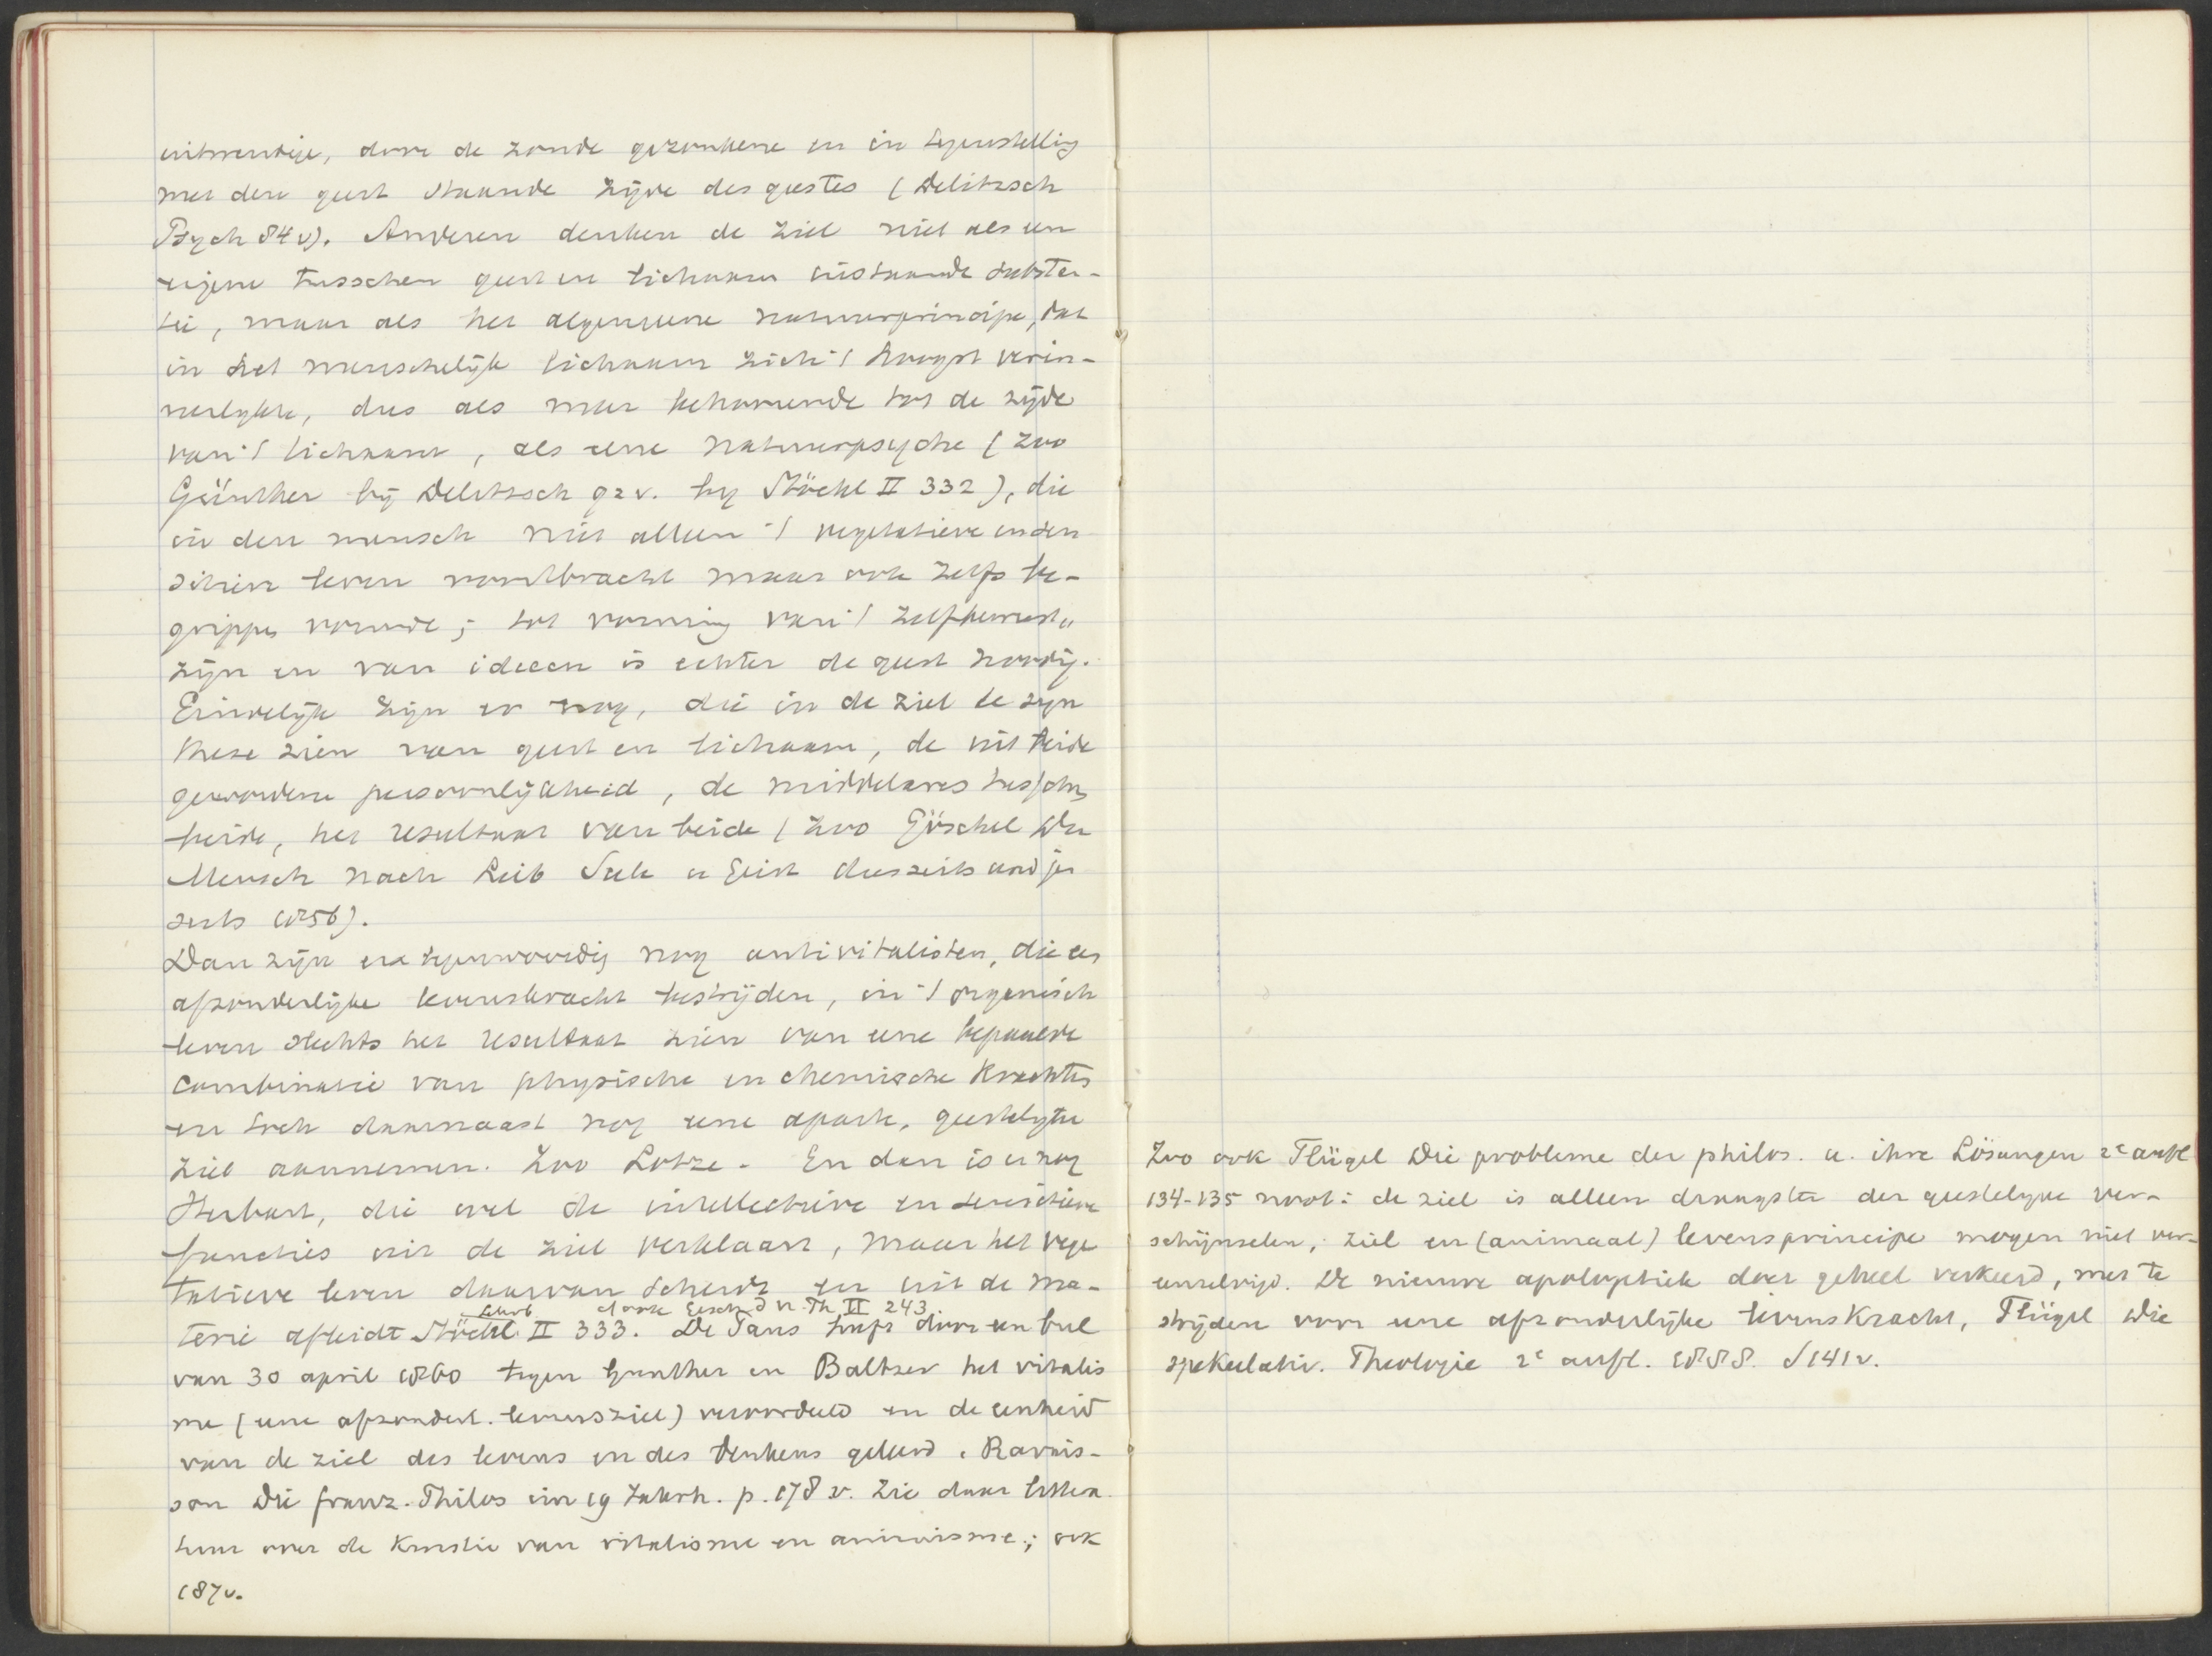 uitwendige, door de zonde gezonkene en in tegenstelling
met den geest staande zijde des geestes (Delitzsch
Psych 84 v). Anderen denken de ziel niet als een
eigene tusschen geest en lichaam instaande substan-
tie, maar als het algemeene natuurprincipe, dat
in het menschelijk lichaam zich 't hoogst verin-
nerlykte, dus als meer behoorende tot de zijde
van 't lichaam, als eene natuurpsyche (zoo
Günther bij Delitzsch 92 v. by Stöckl II 332), die
in den mensch niet alleen 't vegetatieve en sen
sitieve leven voortbracht maar ook zelfs be-
grippen vormde; tot vorming van 't zelfbewust„
zijn en van ideeen is echter de geest noodig.
Eindelijk zijn er nog, die in de ziel de syn
these zien van geest en lichaam, de uit beide
gewordene persoonlijkheid, de middelares tusschen
beide, het resultaat van beide (zoo Göschel Der
Mensch nach Leib Seele u Geist diesseits und jen
seits 1856).
Dan zijn er tegenwoordig nog antivitalisten, die eene
afzonderlijke levenskracht bestrijden, in 't organisch
leven slechts het resultaat zien van eene bepaalde
combinatie van physische en chemische krachten
en toch daarnaast nog eene aparte, geestelyke
ziel aannemen. Zoo Lotze. En dan is er nog
Herbart, die wel de intellectieve en sensitieve
functies uit de ziel verklaart, maar het vege
tatieve leven daarvan scheidt en uit de ma-
terie afleidt Stöckl II 333. De Paus heeft door een bul
van 30 april 1860 tegen Gunther en Baltzer het vitalis
me (eene afzonderl. levensziel) veroordeeld en de eenheid
van de ziel des levens en des denkens geleerd. Ravais-
son Die franz. Philos im 19 Jahrh. p. 178 v. Zie daar littera
tuur over de kwestie van vitalisme en animisme; ook
187 v.
Zoo ook Flügel Die probleme der philos. u. ihre Lösungen 2e aufl
134-135 noot: de ziel is alleen draagster der geestelyke ver-
schijnselen; ziel en (animaal) levensprincipe mogen niet ver-
eenzelvigd. De nieuwe apologetiek doet geheel verkeerd, met te
strijden voor eene afzonderlijke levenskracht, Flügel Die
spekulativ. Theologie 2e aufl. 1888. S 141 v.